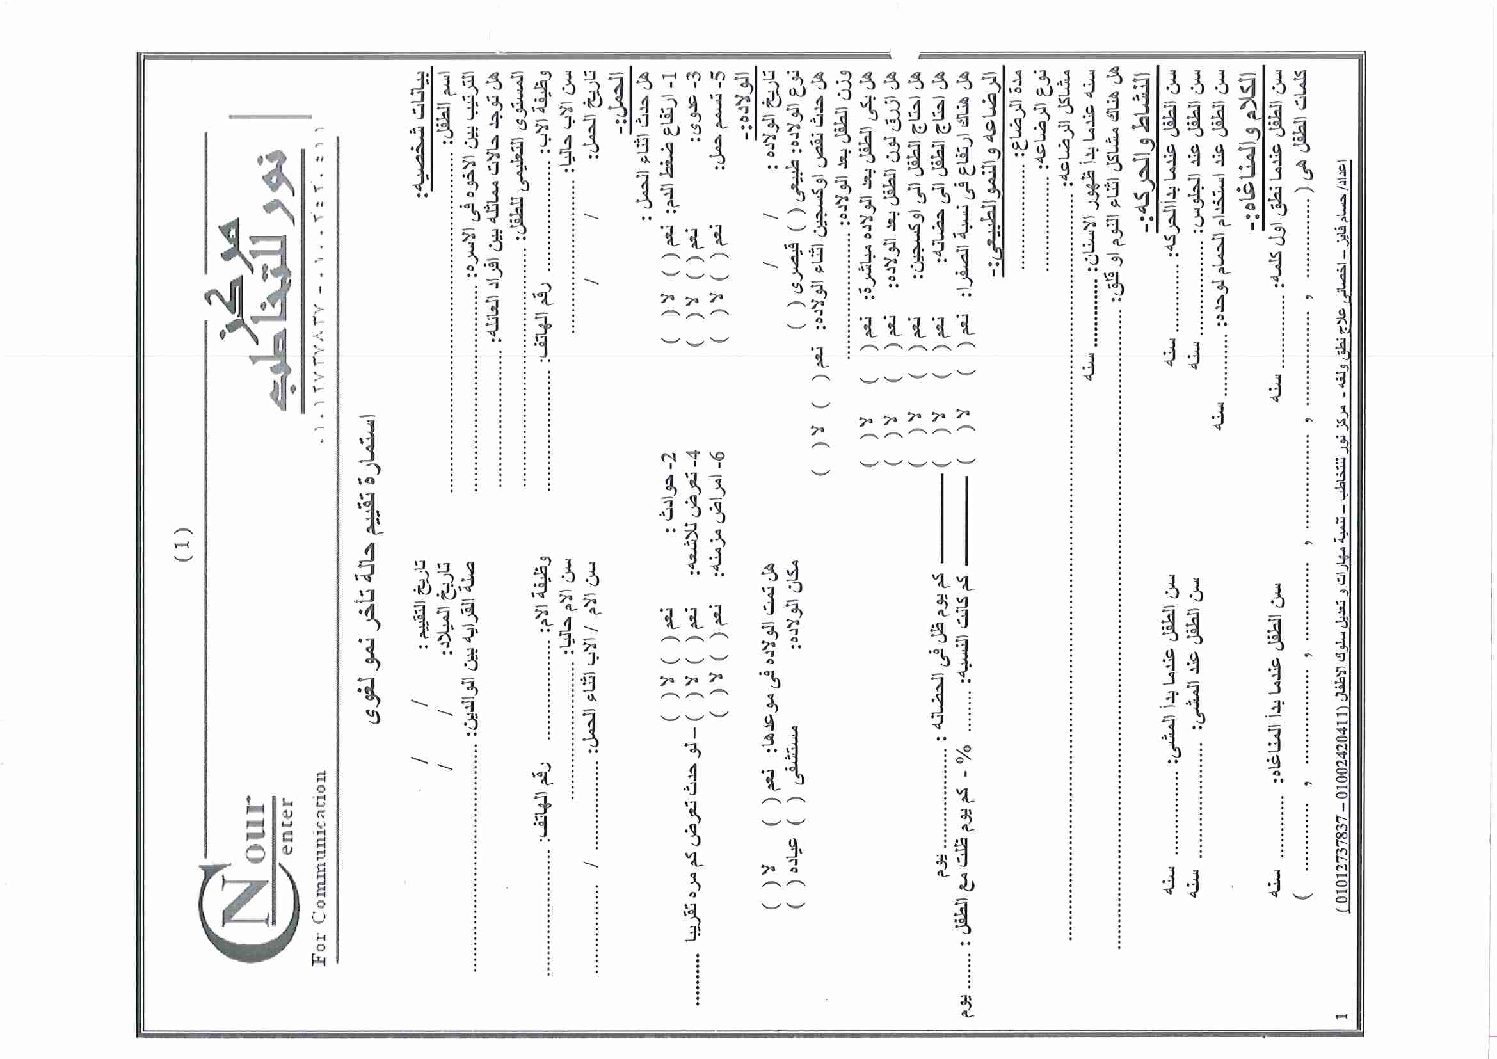 (1)
Nour
Center
For Communication
مركز
نور للتخاطب
استمارة تقييم حالة تأخر نمو لغوى
بيانات شخصيه: تاريخ التقييم : / /
اسم الطفل: .......... تاريخ الميلاد: / /
الترتيب بين الاخوه فى الاسره: .......... صلة القرابه بين الوالدين: ..........
هل توجد حالات مماثله بين افراد العائله: ..........
المستوى التعليمى للطفل: ..........
وظيفة الاب: .......... رقم الهاتف: .......... وظيفة الام: .......... رقم الهاتف: ..........
سن الاب حاليا: .......... سن الام حاليا: ..........
تاريخ الحمل: / / سن الام / الاب اثناء الحمل: .......... / ..........
الحمل:-
هل حدث اثناء الحمل :
1- ارتفاع ضغط الدم: نعم ( ) لا ( ) 2- حوادث : نعم ( ) لا ( )
3- عدوى: نعم ( ) لا ( ) 4- تعرض للاشعه: نعم ( ) لا ( ) – لو حدث تعرض كم مره تقريبا ..........
5- تسمم حمل: نعم ( ) لا ( ) 6- امراض مزمنه: نعم ( ) لا ( )
الولاده:-
تاريخ الولاده : / / هل تمت الولاده فى موعدها: نعم ( ) لا ( )
نوع الولاده: طبيعى ( ) قيصرى ( ) مكان الولاده: مستشفى ( ) عياده ( )
هل حدث نقص اوكسجين اثناء الولاده: نعم ( ) لا ( )
وزن الطفل بعد الولاده: ..........
هل بكى الطفل بعد الولاده مباشرة: نعم ( ) لا ( )
هل ازرق لون الطفل بعد الولاده: نعم ( ) لا ( )
هل احتاج الطفل الى اوكسجين: نعم ( ) لا ( )
هل احتاج الطفل الى حضانه: نعم ( ) لا ( ) ـــــ كم يوم ظل فى الحضانه : .......... يوم
هل هناك ارتفاع فى نسبة الصفرا: نعم ( ) لا ( ) ـــــ كم كانت النسبه: ........ % - كم يوم ظلت مع الطفل : ...... يوم
الرضاعه والنمو الطبيعى:-
مدة الرضاع: ..........
نوع الرضاعه: ..........
مشاكل الرضاعه: ..........
سنه عندما بدأ ظهور الاسنان: .......... سنه
هل هناك مشاكل اثناء النوم او قلق: ..........
النشاط والحركه:-
سن الطفل عندما بدأ الحركه: .......... سنه سن الطفل عندما بدأ المشى: .......... سنه
سن الطفل عند الجلوس: .......... سنه سن الطفل عند المشى: .......... سنه
سن الطفل عند استخدام الحمام لوحده: .......... سنه
الكلام والمناغاه:-
سن الطفل عندما نطق اول كلمه: .......... سنه سن الطفل عندما بدأ المناغاه: .......... سنه
كلمات الطفل هى ( .......... , .......... , .......... , .......... , .......... , .......... )
اعداد/ حسام فايز – اخصائى علاج نطق ولغه - مركز نور للتخاطب – تنمية مهارات و تعديل سلوك الاطفال (01002420411 – 01012737837 )
1